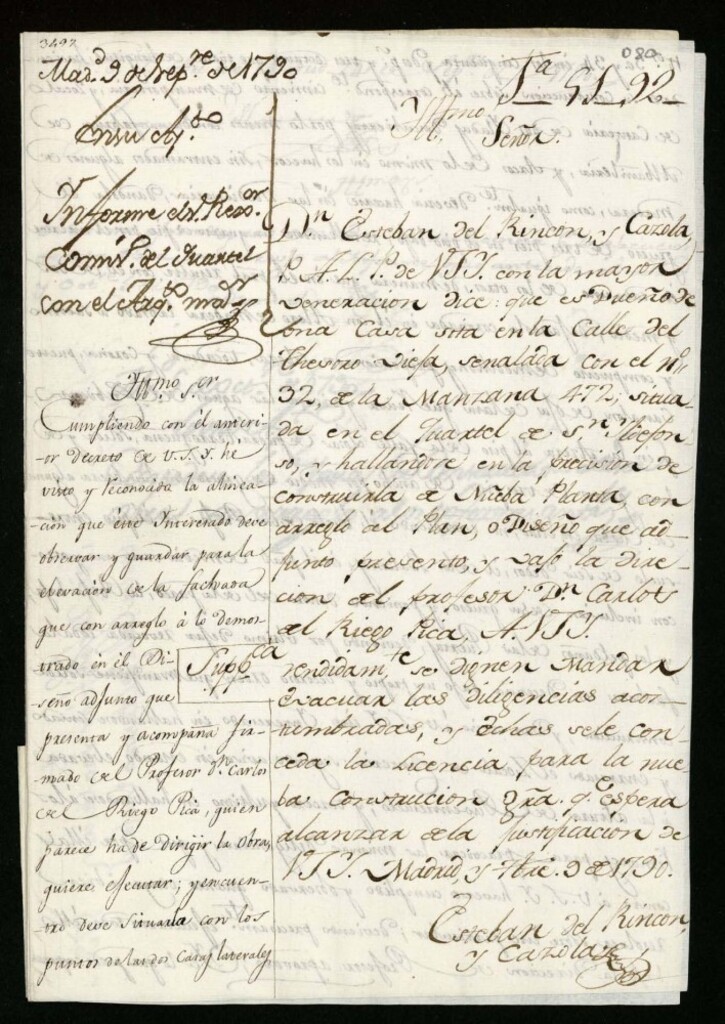 3497
080
1ª 51 92
Mad.d 9 de Sep.re de 1790
En su Ay.to
Informe el S.r Rexr.
Comis.o del Quartel
con el Arq.to m.or
Yllmo S.or
Cumpliendo con él anteri-
or decreto de V.S.Y. hé
visto y reconocido la alinea-
ción que éste Interesado deve
observar y guardar para la
elevación de la fachada
que con arreglo á lo demos-
trado en él Di-
seño adjunto que
presenta y acompaña fir-
mado del Profesor dn. Carlos
del Riego Pica, quien
parece ha de dirigir la Obra,
quiere ejecutar; y en cuen-
tro deve situarla con los
puntos de las dos Casas laterales
Yllmo
Señor.
D.n Esteban del Rincon, y Cazola,
P. A. L. P. de VSY. con la mayor
veneracion dice: que es Dueño de
una Casa sita en la Calle del
Thesoro vieja, señalada con el nº
32, de la Manzana 472; situa-
da en el Quartel de S.n Yldefon
so, y hallandose en la precision de
construirla de Nueba Planta, con
arreglo al Plan, o Diseño que ad-
junto presento, y vajo la dire-
cion del profesor D.n Carlos
del Riego Pica, A. VSY.
Supp.ca
rendidam.te se dignen Mandar
evacuar las diligencias acos-
tumbradas, y echas se le con-
ceda la licencia para la nue-
ba construcion gra. q.e espera
alcanzar de la Justificacion de
VSY. Madrid, y 7bre. 9 de 1790.
Esteban del Rincon,
y Cazola